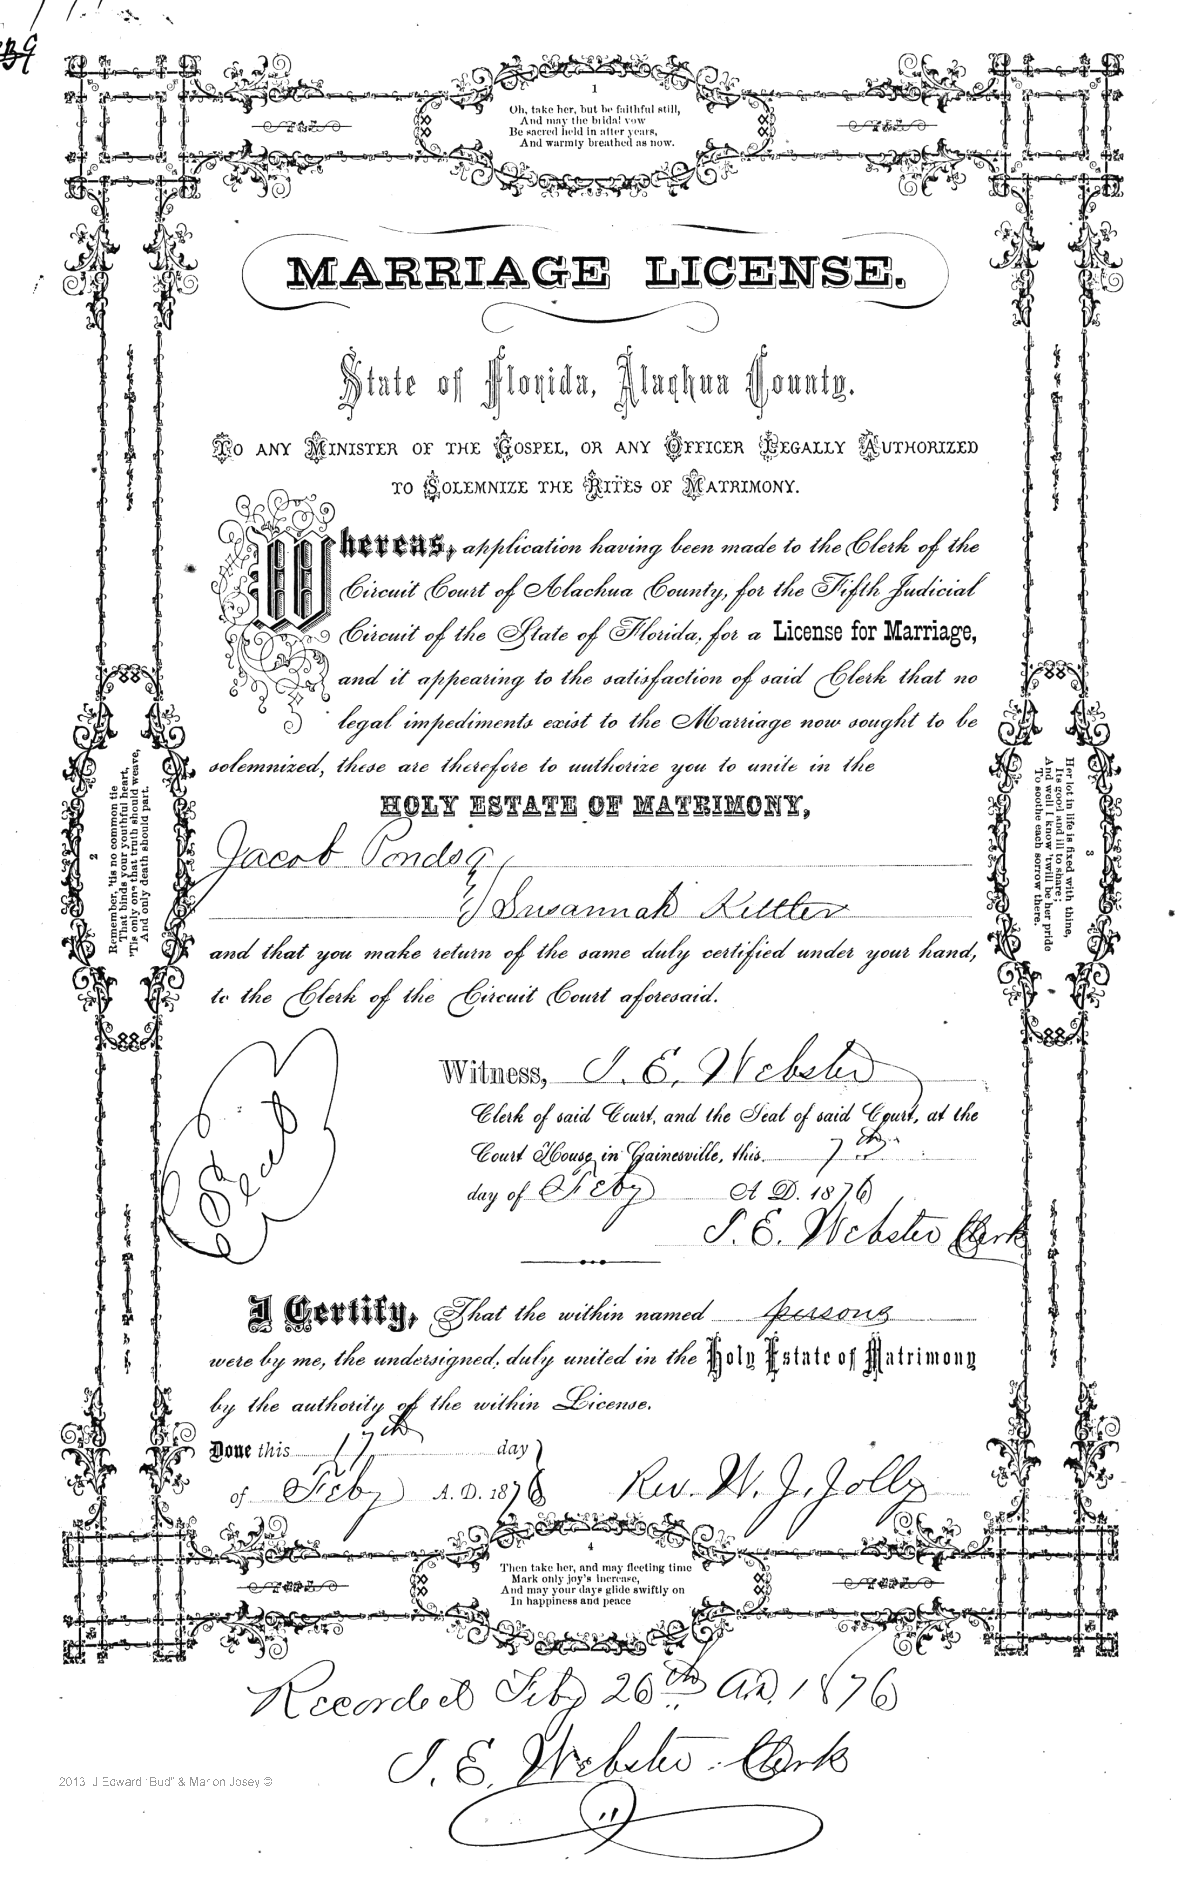 1
Oh, take her, but be faithful still,
And may the bridal vow
Be sacred held in after years,
And warmly breathed as now.
MARRIAGE LICENSE.
State of Florida, Alachua County.
TO ANY MINISTER OF THE GOSPEL, OR ANY OFFICER LEGALLY AUTHORIZED
TO SOLEMNIZE THE RITES OF MATRIMONY.
Whereas, application having been made to the Clerk of the
Circuit Court of Alachua County, for the Fifth Judicial
Circuit of the State of Florida, for a License for Marriage,
and it appearing to the satisfaction of said Clerk that no
legal impediments exist to the Marriage now sought to be
solemnized, these are therefore to authorize you to unite in the
HOLY ESTATE OF MATRIMONY,
Jacob Ponds
&
Susannah
and that you make return of the same duly certified under your hand,
to the Clerk of the Circuit Court aforesaid.
2
Remember, 'tis no common tie
That binds your youthful heart,
'Tis only one that truth should weave,
And only death should part.
3
Her lot in life is fixed with thine,
Its good and ill to share;
And well I know 'twill be her pride
To soothe each sorrow there.
Seal
Witness, J. E. Webster
Clerk of said Court, and the Seal of said Court, at the
Court House in Gainesville, this 7th
day of Feby A. D. 1876
J. E. Webster Clerk
I Certify, That the within named persons
were by me, the undersigned, duly united in the Holy Estate of Matrimony
by the authority of the within License.
Done this 17th day
of Feby A. D. 1876 Rev. W. J. Jolly
4
Then take her, and may fleeting time
Mark only joy's increase,
And may your days glide swiftly on
In happiness and peace
Recorded Feby 26th A.D. 1876
J. E. Webster Clerk
2013 J Edward "Bud" & Marion Josey ©